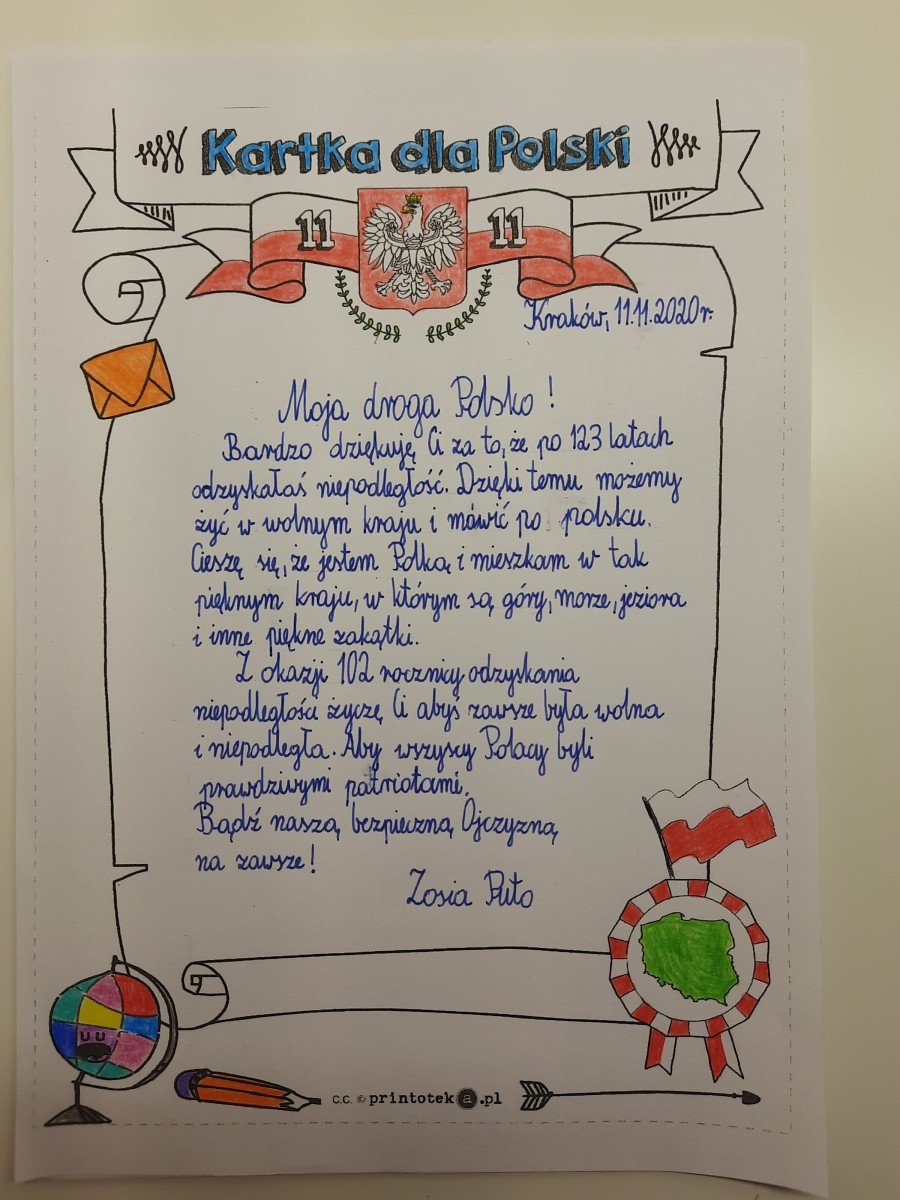 Kartka dla Polski
11 11
Kraków, 11.11.2020r.
Moja droga Polsko!
Bardzo dziękuję Ci za to, że po 123 latach
odzyskałaś niepodległość. Dzięki temu możemy
żyć w wolnym kraju i mówić po polsku.
Cieszę się, że jestem Polką i mieszkam w tak
pięknym kraju, w którym są góry, morze, jeziora
i inne piękne zakątki.
Z okazji 102 rocznicy odzyskania
niepodległości życzę Ci abyś zawsze była wolna
i niepodległa. Aby wszyscy Polacy byli
prawdziwymi patriotami.
Bądź naszą bezpieczną Ojczyzną
na zawsze!
Zosia Puto
c.c. © printoteka.pl